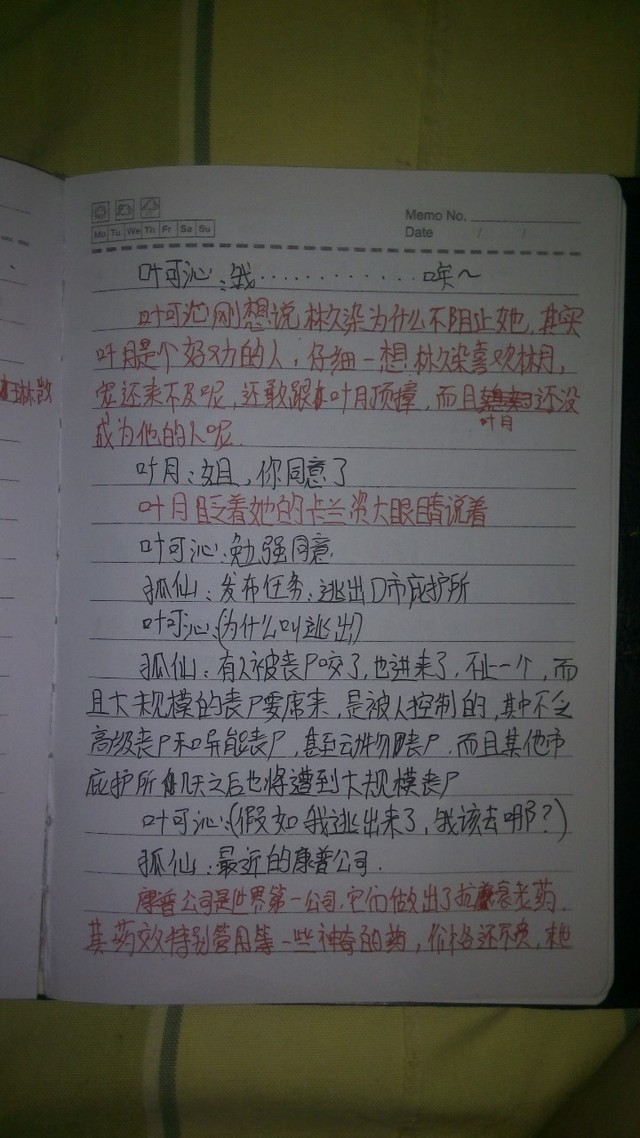 Memo No.
Mo Tu We Th Fr Sa Su
Date / /
叶可沁:我............唉~
叶可沁刚想说林久染为什么不阻止她,其实
叶月是个好劝的人,仔细一想林久染喜欢林月,
宠还来不及呢,还敢跟叶月顶撞,而且还没
叶月
成为他的人呢.
琳散
叶月:姐,你同意了
叶月眨着她的卡兰资大眼睛说着
叶可沁:勉强同意.
狐仙:发布任务:逃出D市庇护所
叶可沁:(为什么叫逃出)
狐仙:有人被丧尸咬了,也进来了,不止一个,而
且大规模的丧尸要席来,是被人控制的,其中不乏
高级丧尸和异能丧尸,甚至动物丧尸.而且其他市
庇护所几天之后也将遭到大规模丧尸
叶可沁:(假如我逃出来了,我该去哪?)
狐仙:最近的康普公司.
康普公司是世界第一公司.它们做出了抗衰老药.
其药效特别管用等一些神奇的药,价格还不贵,